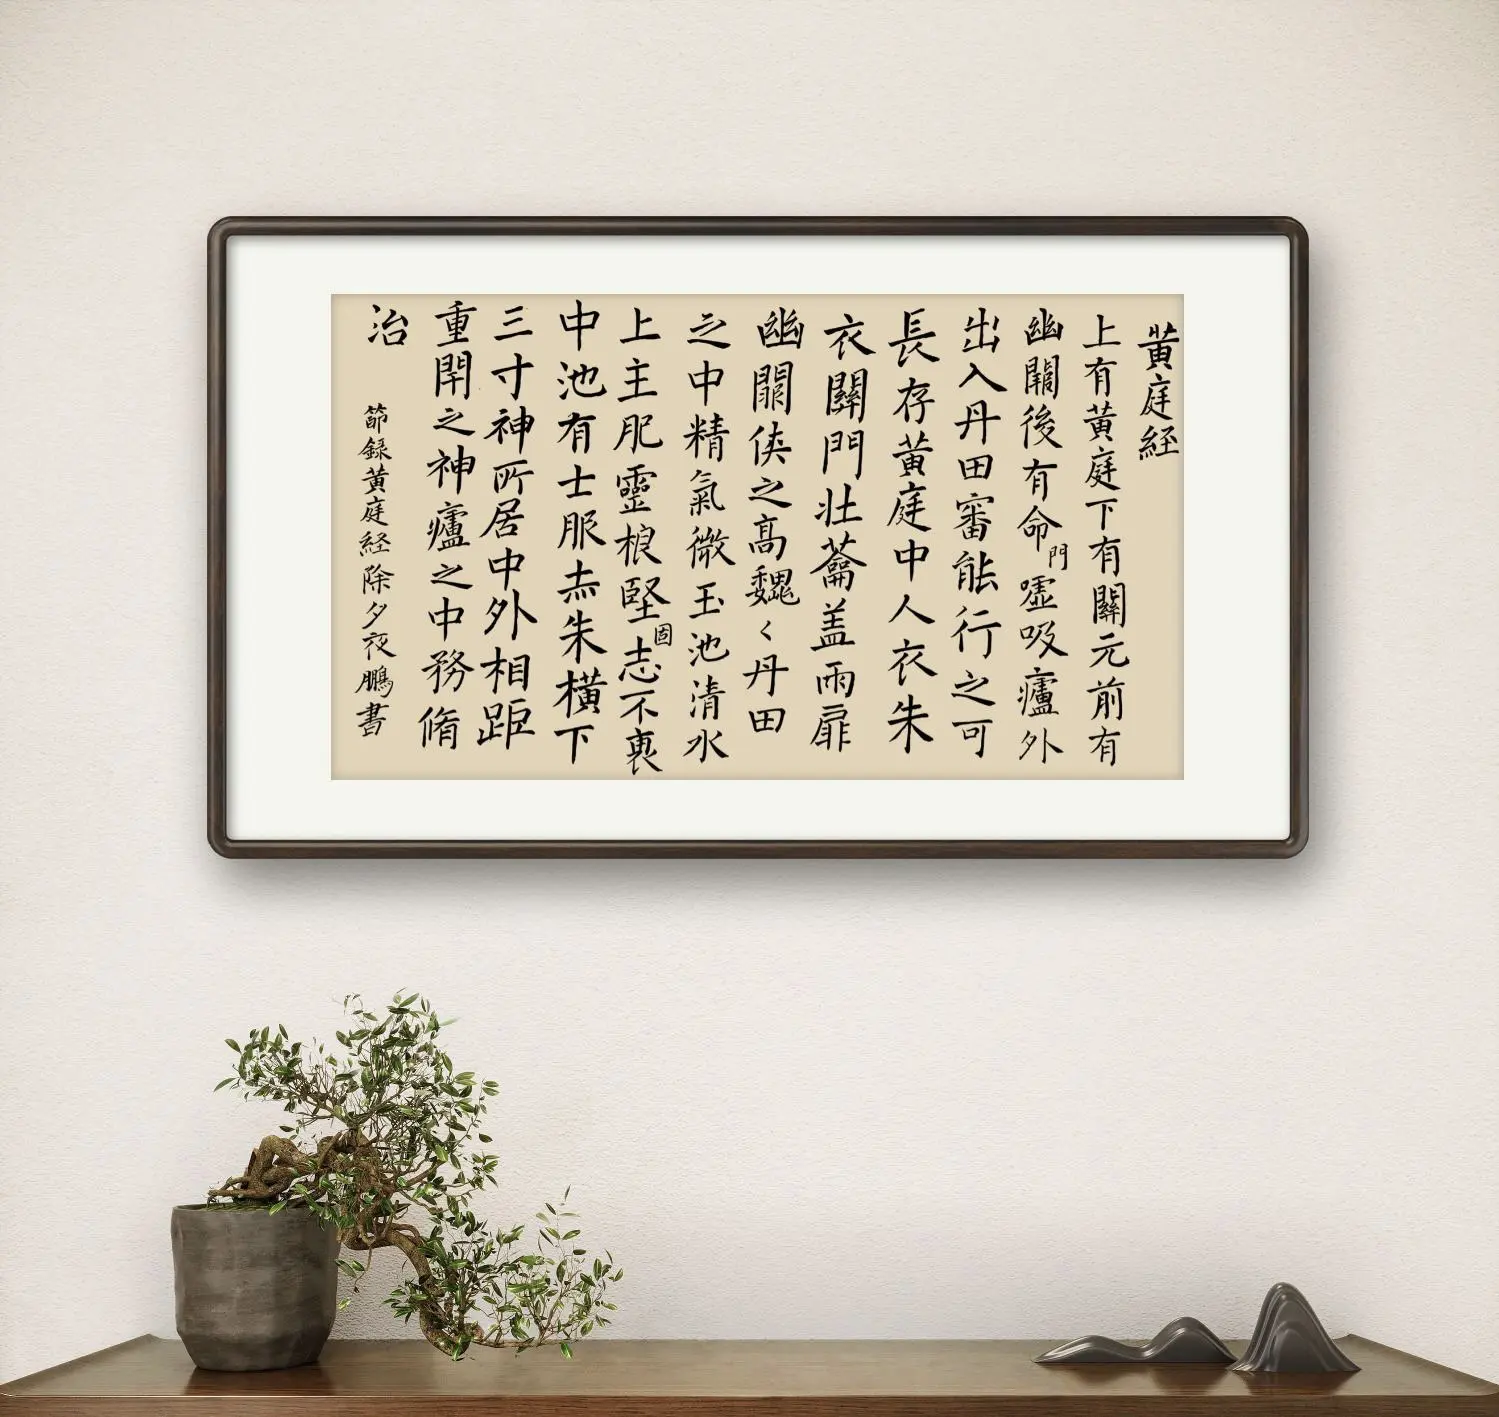 黃庭経
上有黃庭下有關元前有
幽闗後有命門嘘吸廬外
出入丹田審能行之可
長存黃庭中人衣朱
衣關門壮蘥盖兩扉
幽闗俠之高巍〻丹田
之中精氣微玉池清水
上主肥靈根堅固志不衰
中池有士服赤朱橫下
三寸神所居中外相距
重閇之神廬之中務脩
治
節録黃庭経除夕夜鵬書